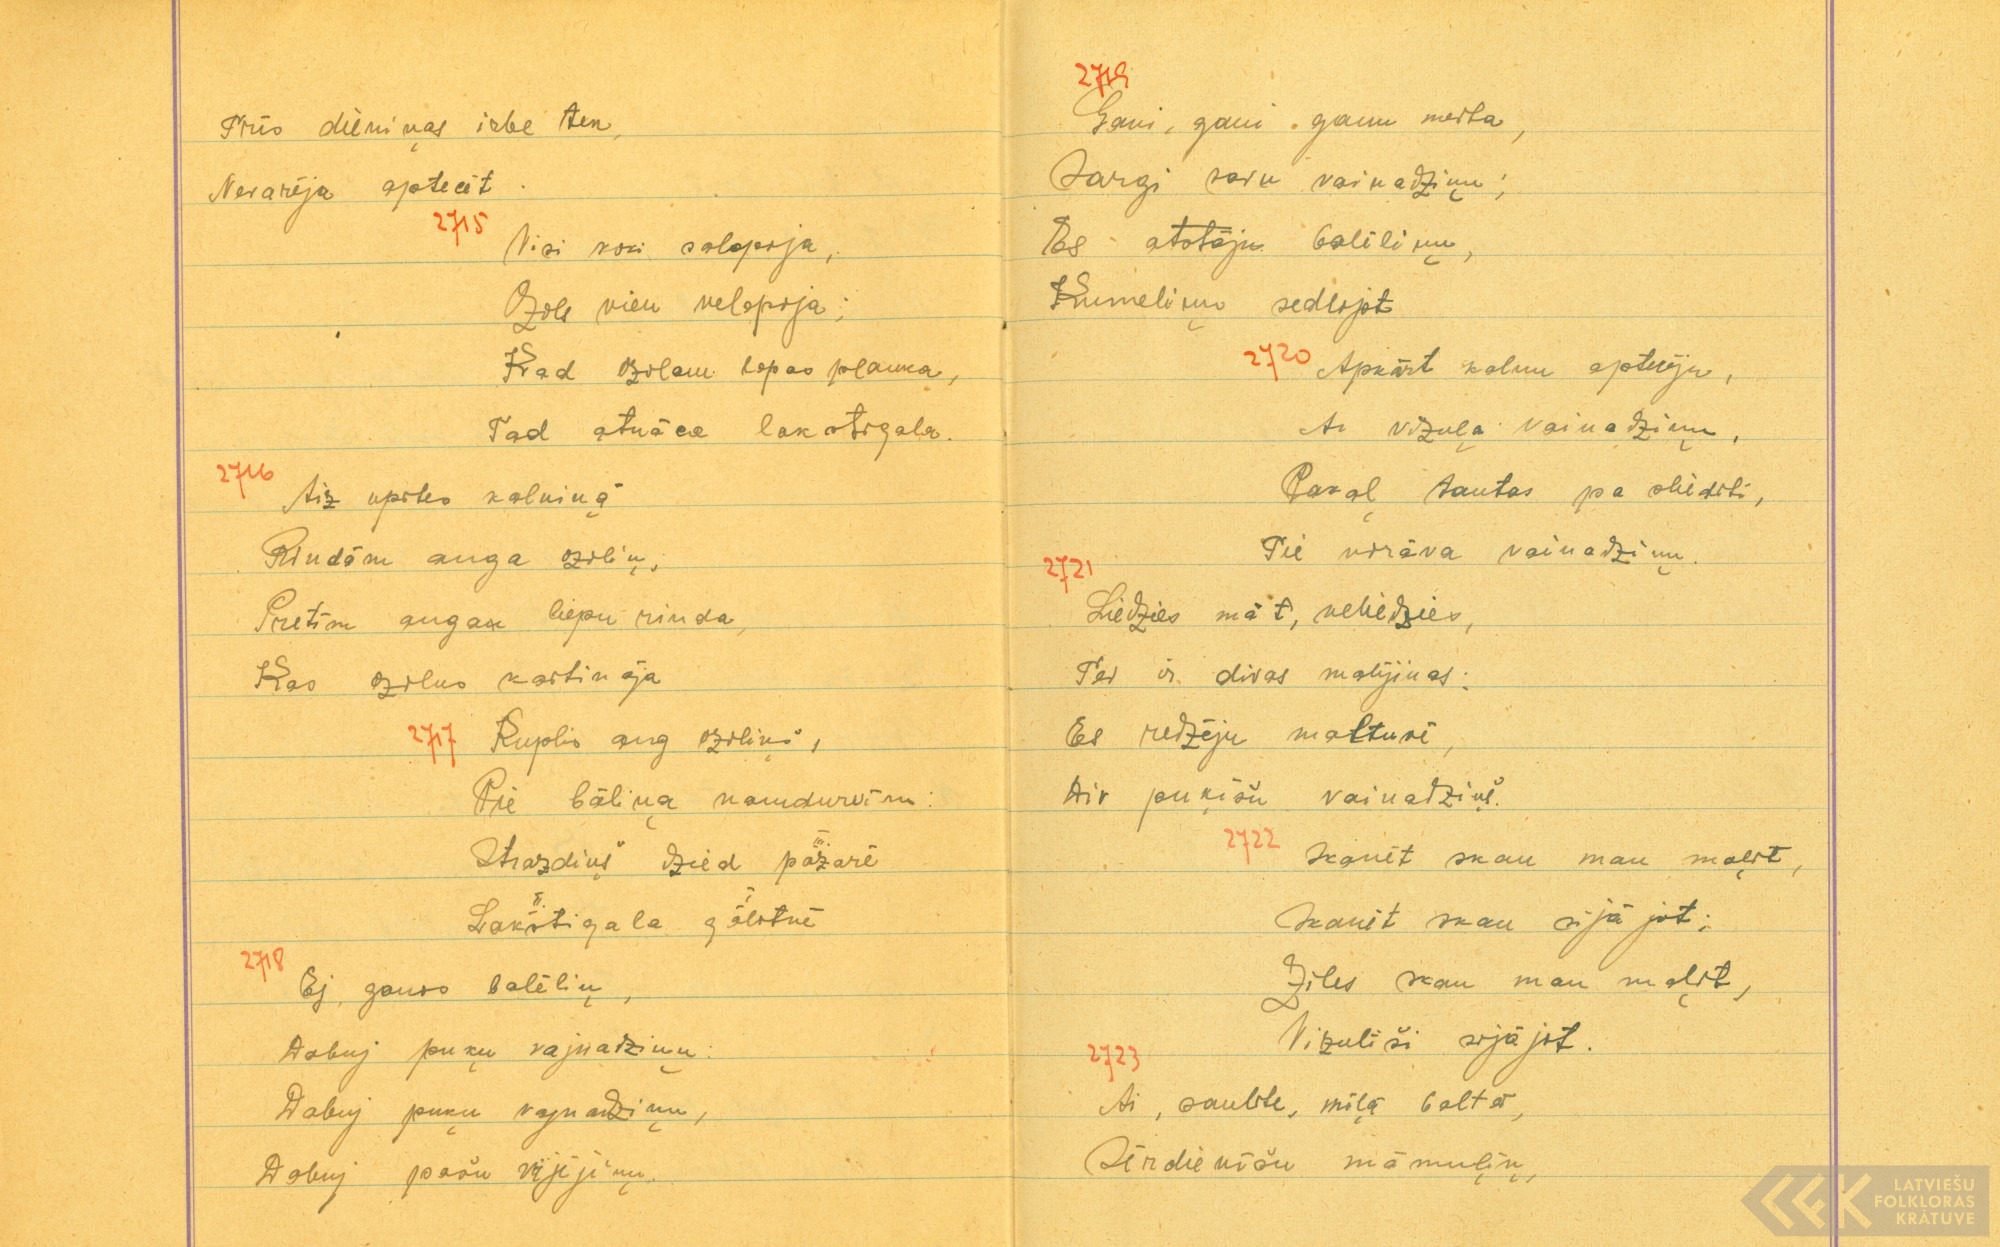 Trīs dieniņas irbe tek,
Nevarēja aptecēt.
2715
Visi koki salapoja,
Ozols vien nelapoja;
Kad ozolam lapas plauka,
Tad atnāca lakstīgala.
2716
Aiz upītes kalniņā
Rindām auga ozoliņ,
Pretīm augax liepu rinda,
Kas ozolus kaitināja
2717
Kuplis aug ozoliņš,
Pie bāliņa namdurvīm:
Strazdiņš dzied pažarē
Lakstīgala galotnē
2718
Ej, gauso balēliņ,
Dabuj puķu vajnadziņu:
Dabuj puķu vajnadziņu,
Dabuj pašu vijējiņu.
2719
Gani, gani ganu meita,
Sargi savu vainadziņu;
Es atstāju balēliņu,
Kumeliņu sedlojot
2720
Apkārt kalnu aptecēju,
Ar vizuļa vainadziņu,
Pakaļ tautas pa sliedīti,
Tie norāva vainadziņu.
2721
Liedzies māt, neliedzies,
Tev ir divas malējinas:
Es redzēju maltuvē,
Div puķīšu vainadziņš.
2722
Skanēt skan man maļot,
Skanēt skan sijājot;
Zīles skan man maļot,
Vizulīši sijājot.
2723
Ai, saulīte, mīļā baltā,
Sērdienīšu māmuļiņ,
LATVIEŠU
FOLKLORAS
KRĀTUVE